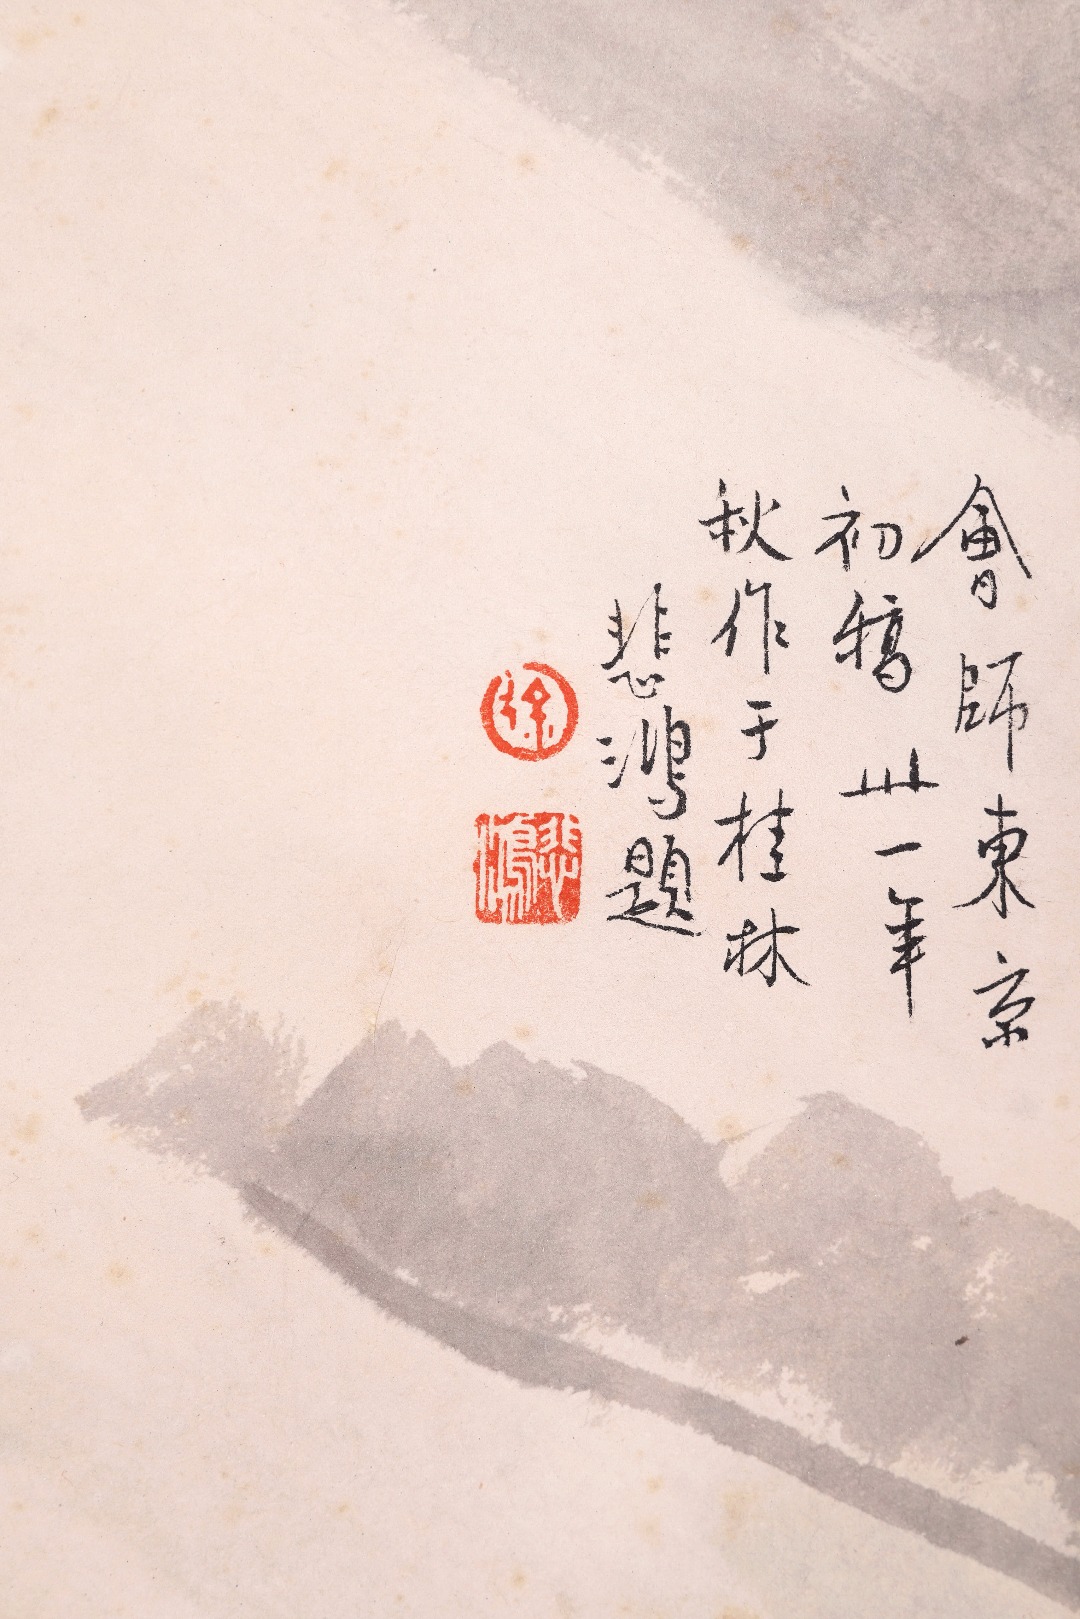 會師東京
初稿 卅一年
秋作于桂林
悲鴻題
徐
悲鴻